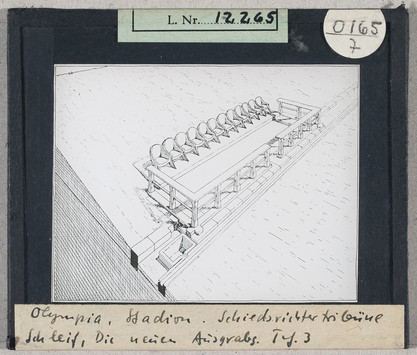 L. Nr. 12265
0165
7
Olympia, Stadion. Schiedsrichtertribüne
Schleif, Die neuen Ausgrabg. Tf. 3